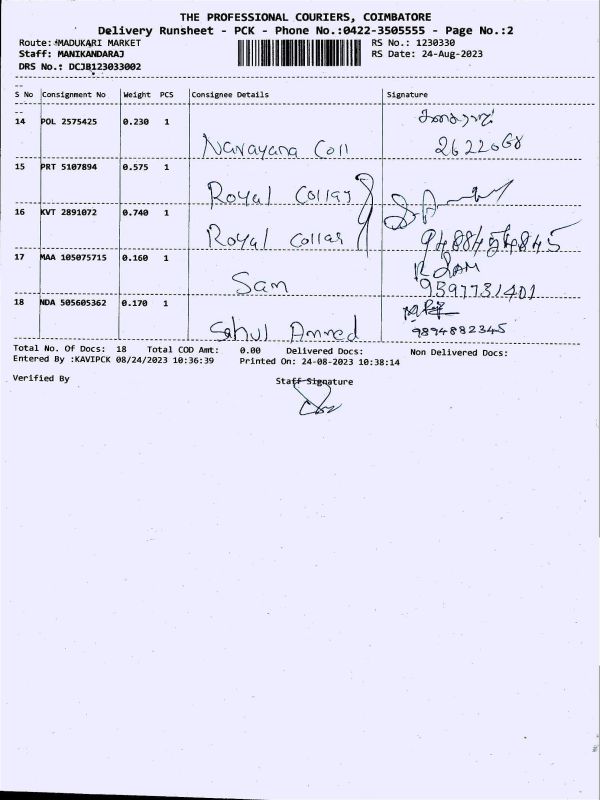 THE PROFESSIONAL COURIERS, COIMBATORE
Delivery Runsheet - PCK - Phone No.:0422-3505555 - Page No.:2
Route: MADUKARI MARKET RS No.: 1230330
Staff: MANIKANDARAJ RS Date: 24-Aug-2023
DRS No.: DCJB123033002
S No Consignment No Weight PCS Consignee Details Signature
14 POL 2575425 0.230 1
Narayana Coll 2622068
15 PRT 5107894 0.575 1
Royal Collas
16 KVT 2891072 0.740 1
Royal Collas
17 MAA 105075715 0.160 1
Sam 9597731401
18 NDA 505605362 0.170 1
Sahul Ammed 9894882345
Total No. Of Docs: 18 Total COD Amt: 0.00 Delivered Docs: Non Delivered Docs:
Entered By :KAVIPCK 08/24/2023 10:36:39 Printed On: 24-08-2023 10:38:14
Verified By Staff Signature